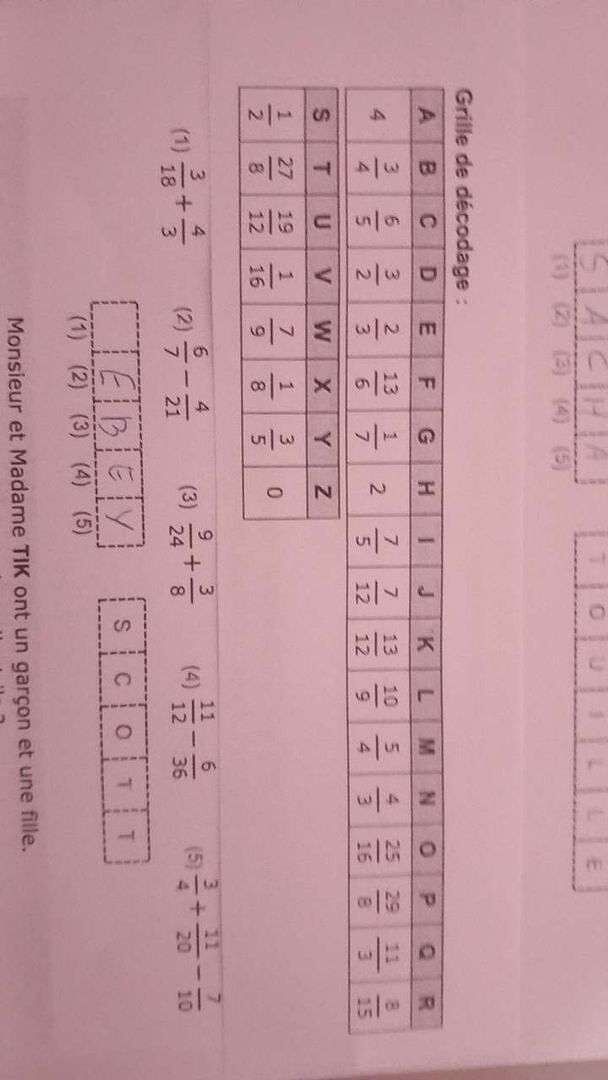 S A C H A T O U I L L E
(1) (2) (3) (4) (5)
Grille de décodage :
A B C D E F G H I J K L M N O P Q R
4 3/4 6/5 3/2 2/3 13/6 1/7 2 7/5 7/12 13/12 10/9 5/4 4/3 25/16 29/8 11/3 8/15
S T U V W X Y Z
1/2 27/8 19/12 1/16 7/9 1/8 3/5 0
(1) 3/18 + 4/3 (2) 6/7 − 4/21 (3) 9/24 + 3/8 (4) 11/12 − 6/36 (5) 3/4 + 11/20 − 7/10
E B E Y S C O T T
(1) (2) (3) (4) (5)
Monsieur et Madame TIK ont un garçon et une fille.